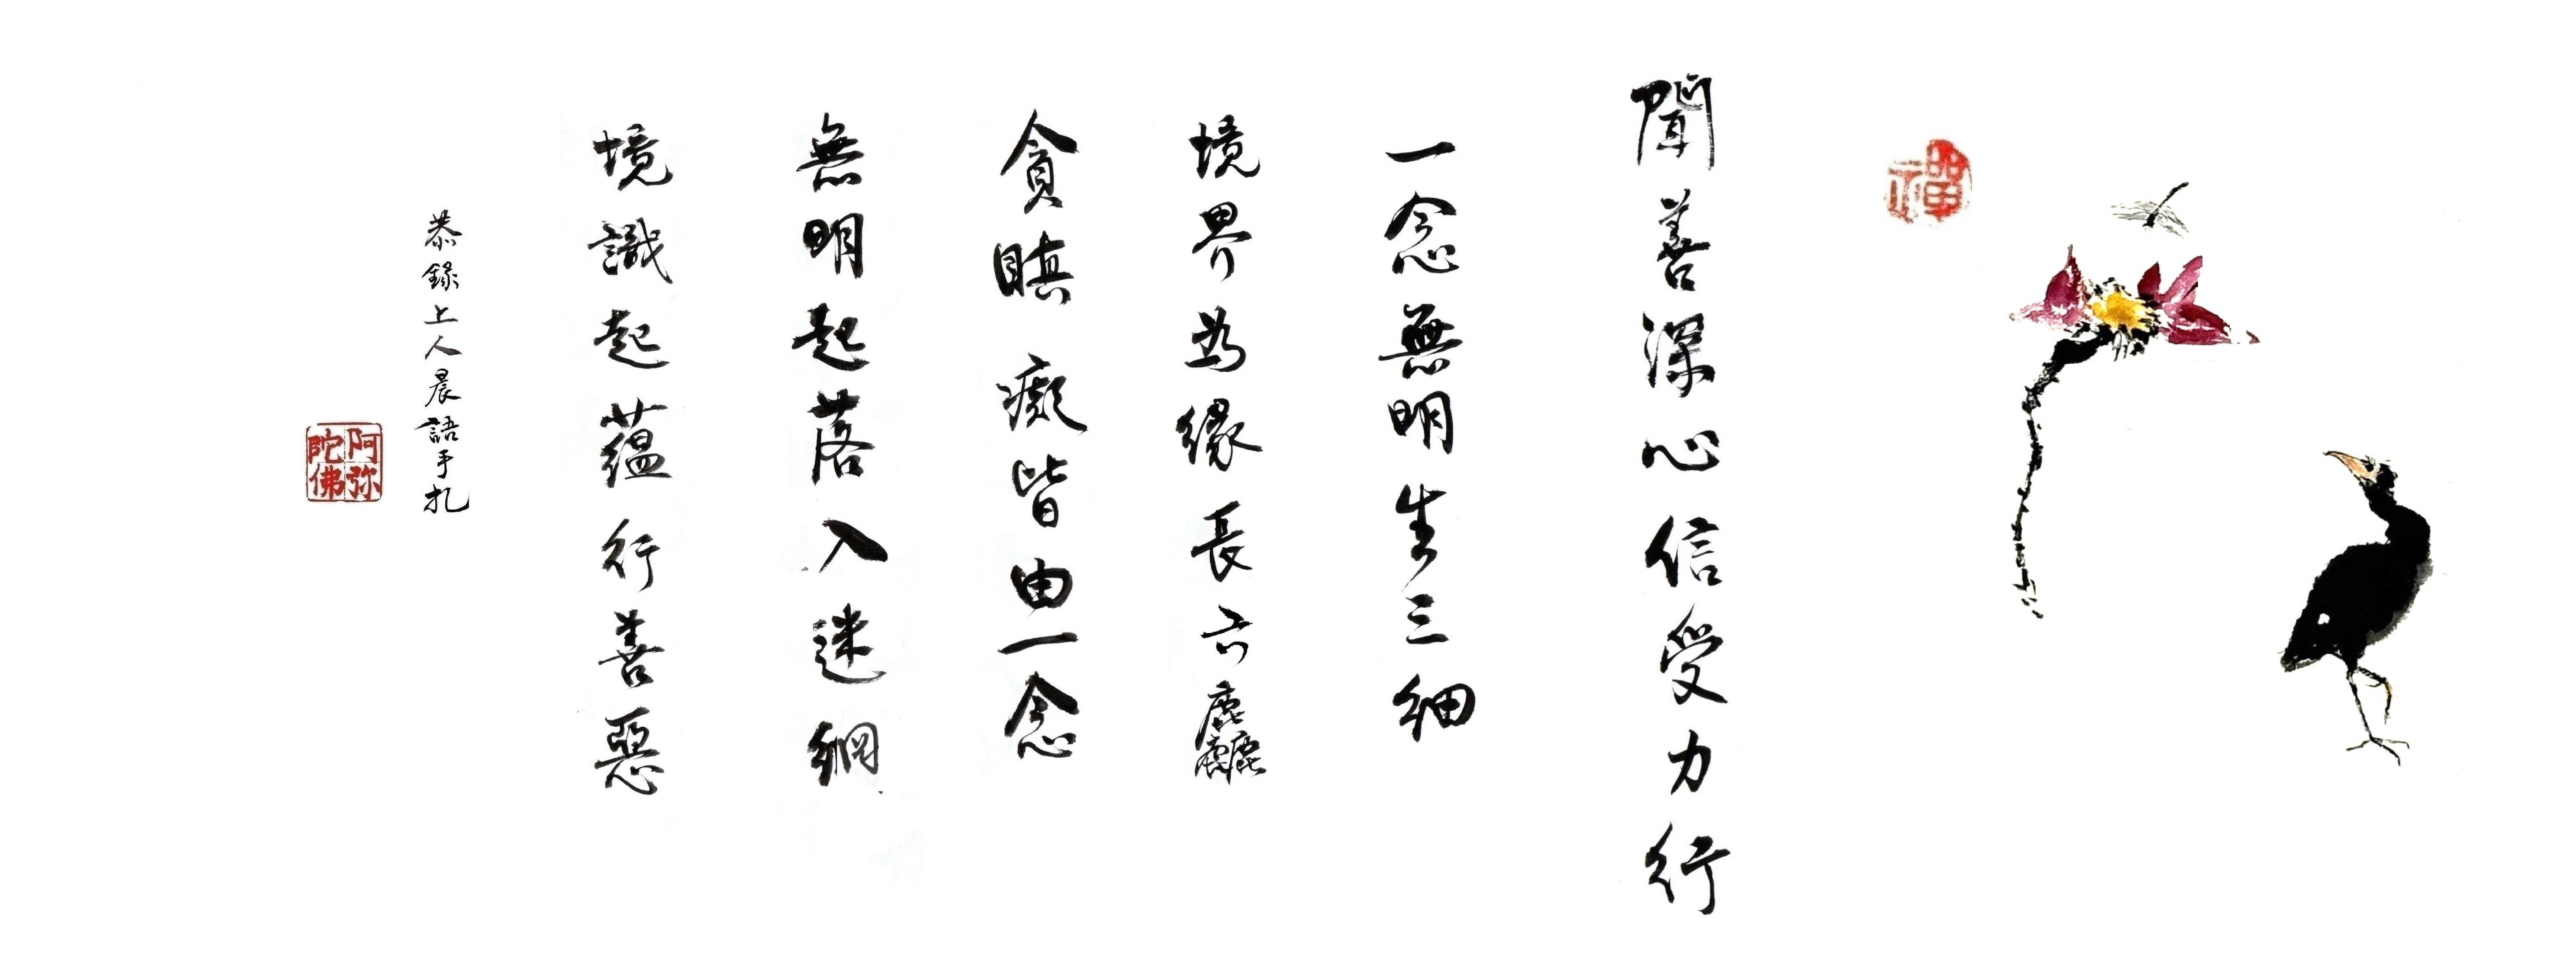 禪
聞善深心信受力行
一念無明生三細
境界為緣長六麤
貪瞋癡皆由一念
無明起落入迷網
境識起蘊行善惡
恭錄上人晨語手札
阿弥陀佛